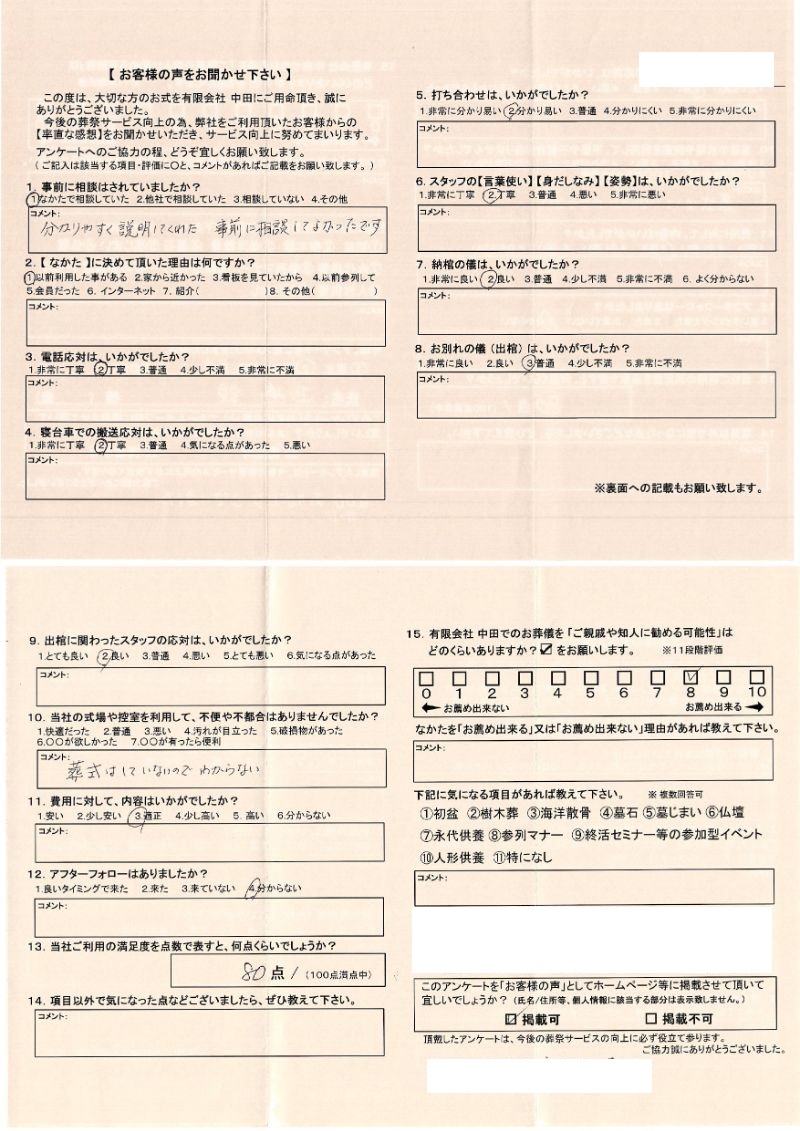 【 お客様の声をお聞かせ下さい 】
この度は、大切な方のお式を有限会社 中田にご用命頂き、誠に
ありがとうございました。
今後の葬祭サービス向上の為、弊社をご利用頂いたお客様からの
【率直な感想】をお聞かせいただき、サービス向上に努めてまいります。
アンケートへのご協力の程、どうぞ宜しくお願い致します。
（ ご記入は該当する項目・評価に〇と、コメントがあればご記載をお願い致します。）
1. 事前に相談はされていましたか？
1.なかたで相談していた 2.他社で相談していた 3.相談していない 4.その他
コメント:
分かりやすく説明してくれた 事前に相談してよかったです
2.【 なかた 】に決めて頂いた理由は何ですか？
1.以前利用した事がある 2.家から近かった 3.看板を見ていたから 4.以前参列して
5.会員だった 6. インターネット 7. 紹介（ ）8. その他（ ）
コメント:
3. 電話応対は、いかがでしたか？
1.非常に丁寧 2.丁寧 3.普通 4.少し不満 5.非常に不満
コメント:
4. 寝台車での搬送応対は、いかがでしたか？
1.非常に丁寧 2.丁寧 3.普通 4.気になる点があった 5.悪い
コメント:
5. 打ち合わせは、いかがでしたか？
1.非常に分かり易い 2.分かり易い 3.普通 4.分かりにくい 5.非常に分かりにくい
コメント:
6. スタッフの【言葉使い】【身だしなみ】【姿勢】は、いかがでしたか？
1.非常に丁寧 2.丁寧 3.普通 4.悪い 5.非常に悪い
コメント:
7. 納棺の儀は、いかがでしたか？
1.非常に良い 2.良い 3.普通 4.少し不満 5.非常に不満 6. よく分からない
コメント:
8. お別れの儀（出棺）は、いかがでしたか？
1.非常に良い 2.良い 3.普通 4.少し不満 5.非常に不満
コメント:
※裏面への記載もお願い致します。
9. 出棺に関わったスタッフの応対は、いかがでしたか？
1.とても良い 2.良い 3.普通 4.悪い 5.とても悪い 6.気になる点があった
コメント:
10. 当社の式場や控室を利用して、不便や不都合はありませんでしたか？
1.快適だった 2.普通 3.悪い 4.汚れが目立った 5.破損物があった
6.〇〇が欲しかった 7.〇〇が有ったら便利
コメント:
葬式はしていないのでわからない
11. 費用に対して、内容はいかがでしたか？
1.安い 2.少し安い 3.適正 4.少し高い 5. 高い 6.分からない
コメント:
12. アフターフォローはありましたか？
1.良いタイミングで来た 2.来た 3.来ていない 4.分からない
コメント:
13. 当社ご利用の満足度を点数で表すと、何点くらいでしょうか？
80 点 / （100点満点中）
14. 項目以外で気になった点などございましたら、ぜひ教えて下さい。
コメント:
15. 有限会社 中田でのお葬儀を「ご親戚や知人に勧める可能性」は
どのくらいありますか？☑ をお願いします。 ※11段階評価
0 1 2 3 4 5 6 7 8 9 10
← お薦め出来ない お薦め出来る →
なかたを「お薦め出来る」又は「お薦め出来ない」理由があれば教えて下さい。
コメント:
下記に気になる項目があれば教えて下さい。 ※ 複数回答可
①初盆 ②樹木葬 ③海洋散骨 ④墓石 ⑤墓じまい ⑥仏壇
⑦永代供養 ⑧参列マナー ⑨終活セミナー等の参加型イベント
⑩人形供養 ⑪特になし
コメント:
このアンケートを「お客様の声」としてホームページ等に掲載させて頂いて
宜しいでしょうか？（氏名/住所等、個人情報に該当する部分は表示致しません。）
☑ 掲載可 □ 掲載不可
頂戴したアンケートは、今後の葬祭サービスの向上に必ず役立て参ります。
ご協力誠にありがとうございました。